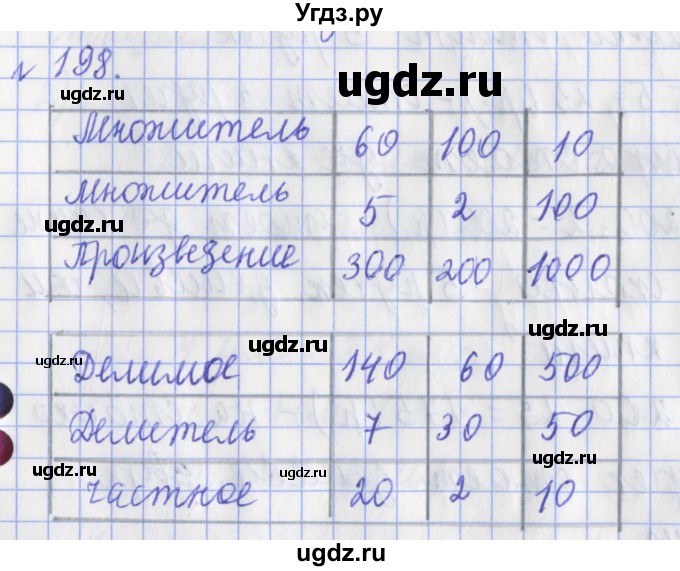 Угдз.ру
№ 198.
ugdz.ru
ugdz.ru
Множитель 60 100 10
Множитель 5 2 100
ugdz.ru
ugdz.ru
Произведение 300 200 1000
ugdz.ru
ugdz.ru
ugdz.ru
Делимое 140 60 500
Делитель 7 30 50
ugdz.ru
ugdz.ru
ugdz.ru
Частное 20 2 10
ugdz.ru